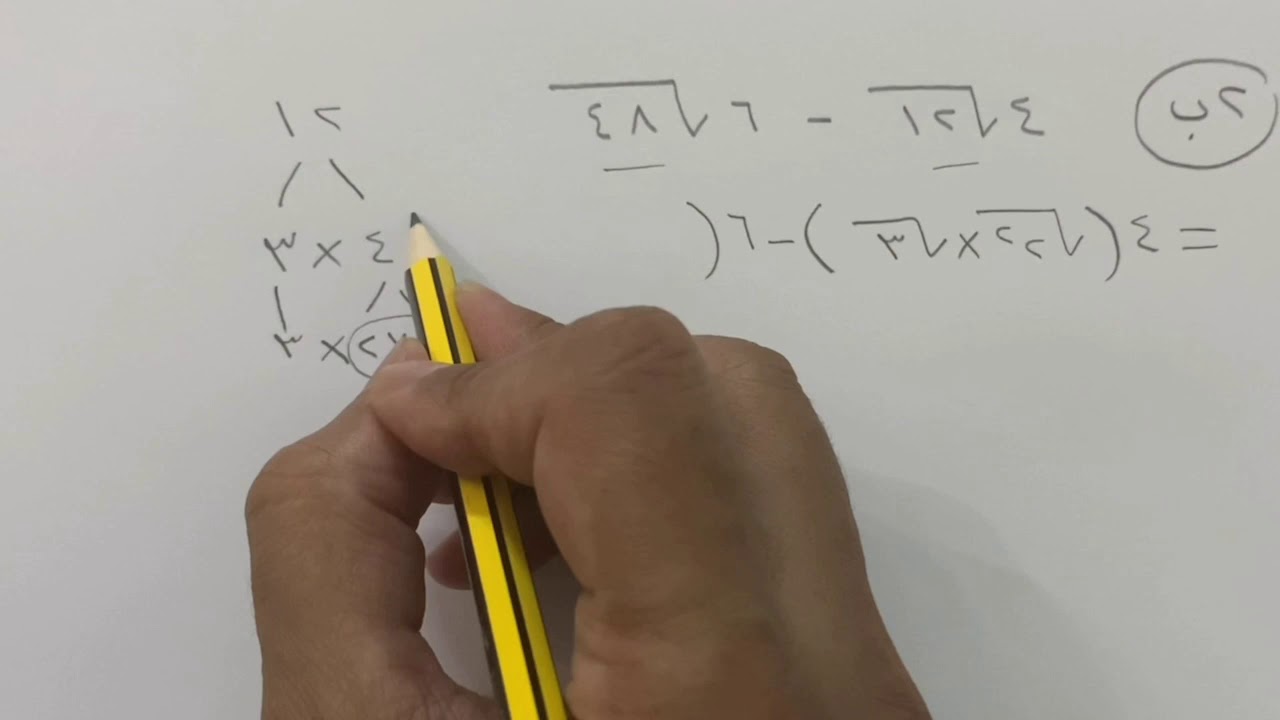 ٢ب
٤√١٢ - ٦√٤٨
= ٤(√٢٢ × √٣) - ٦(
١٢
٣ × ٤
٣ × ٢